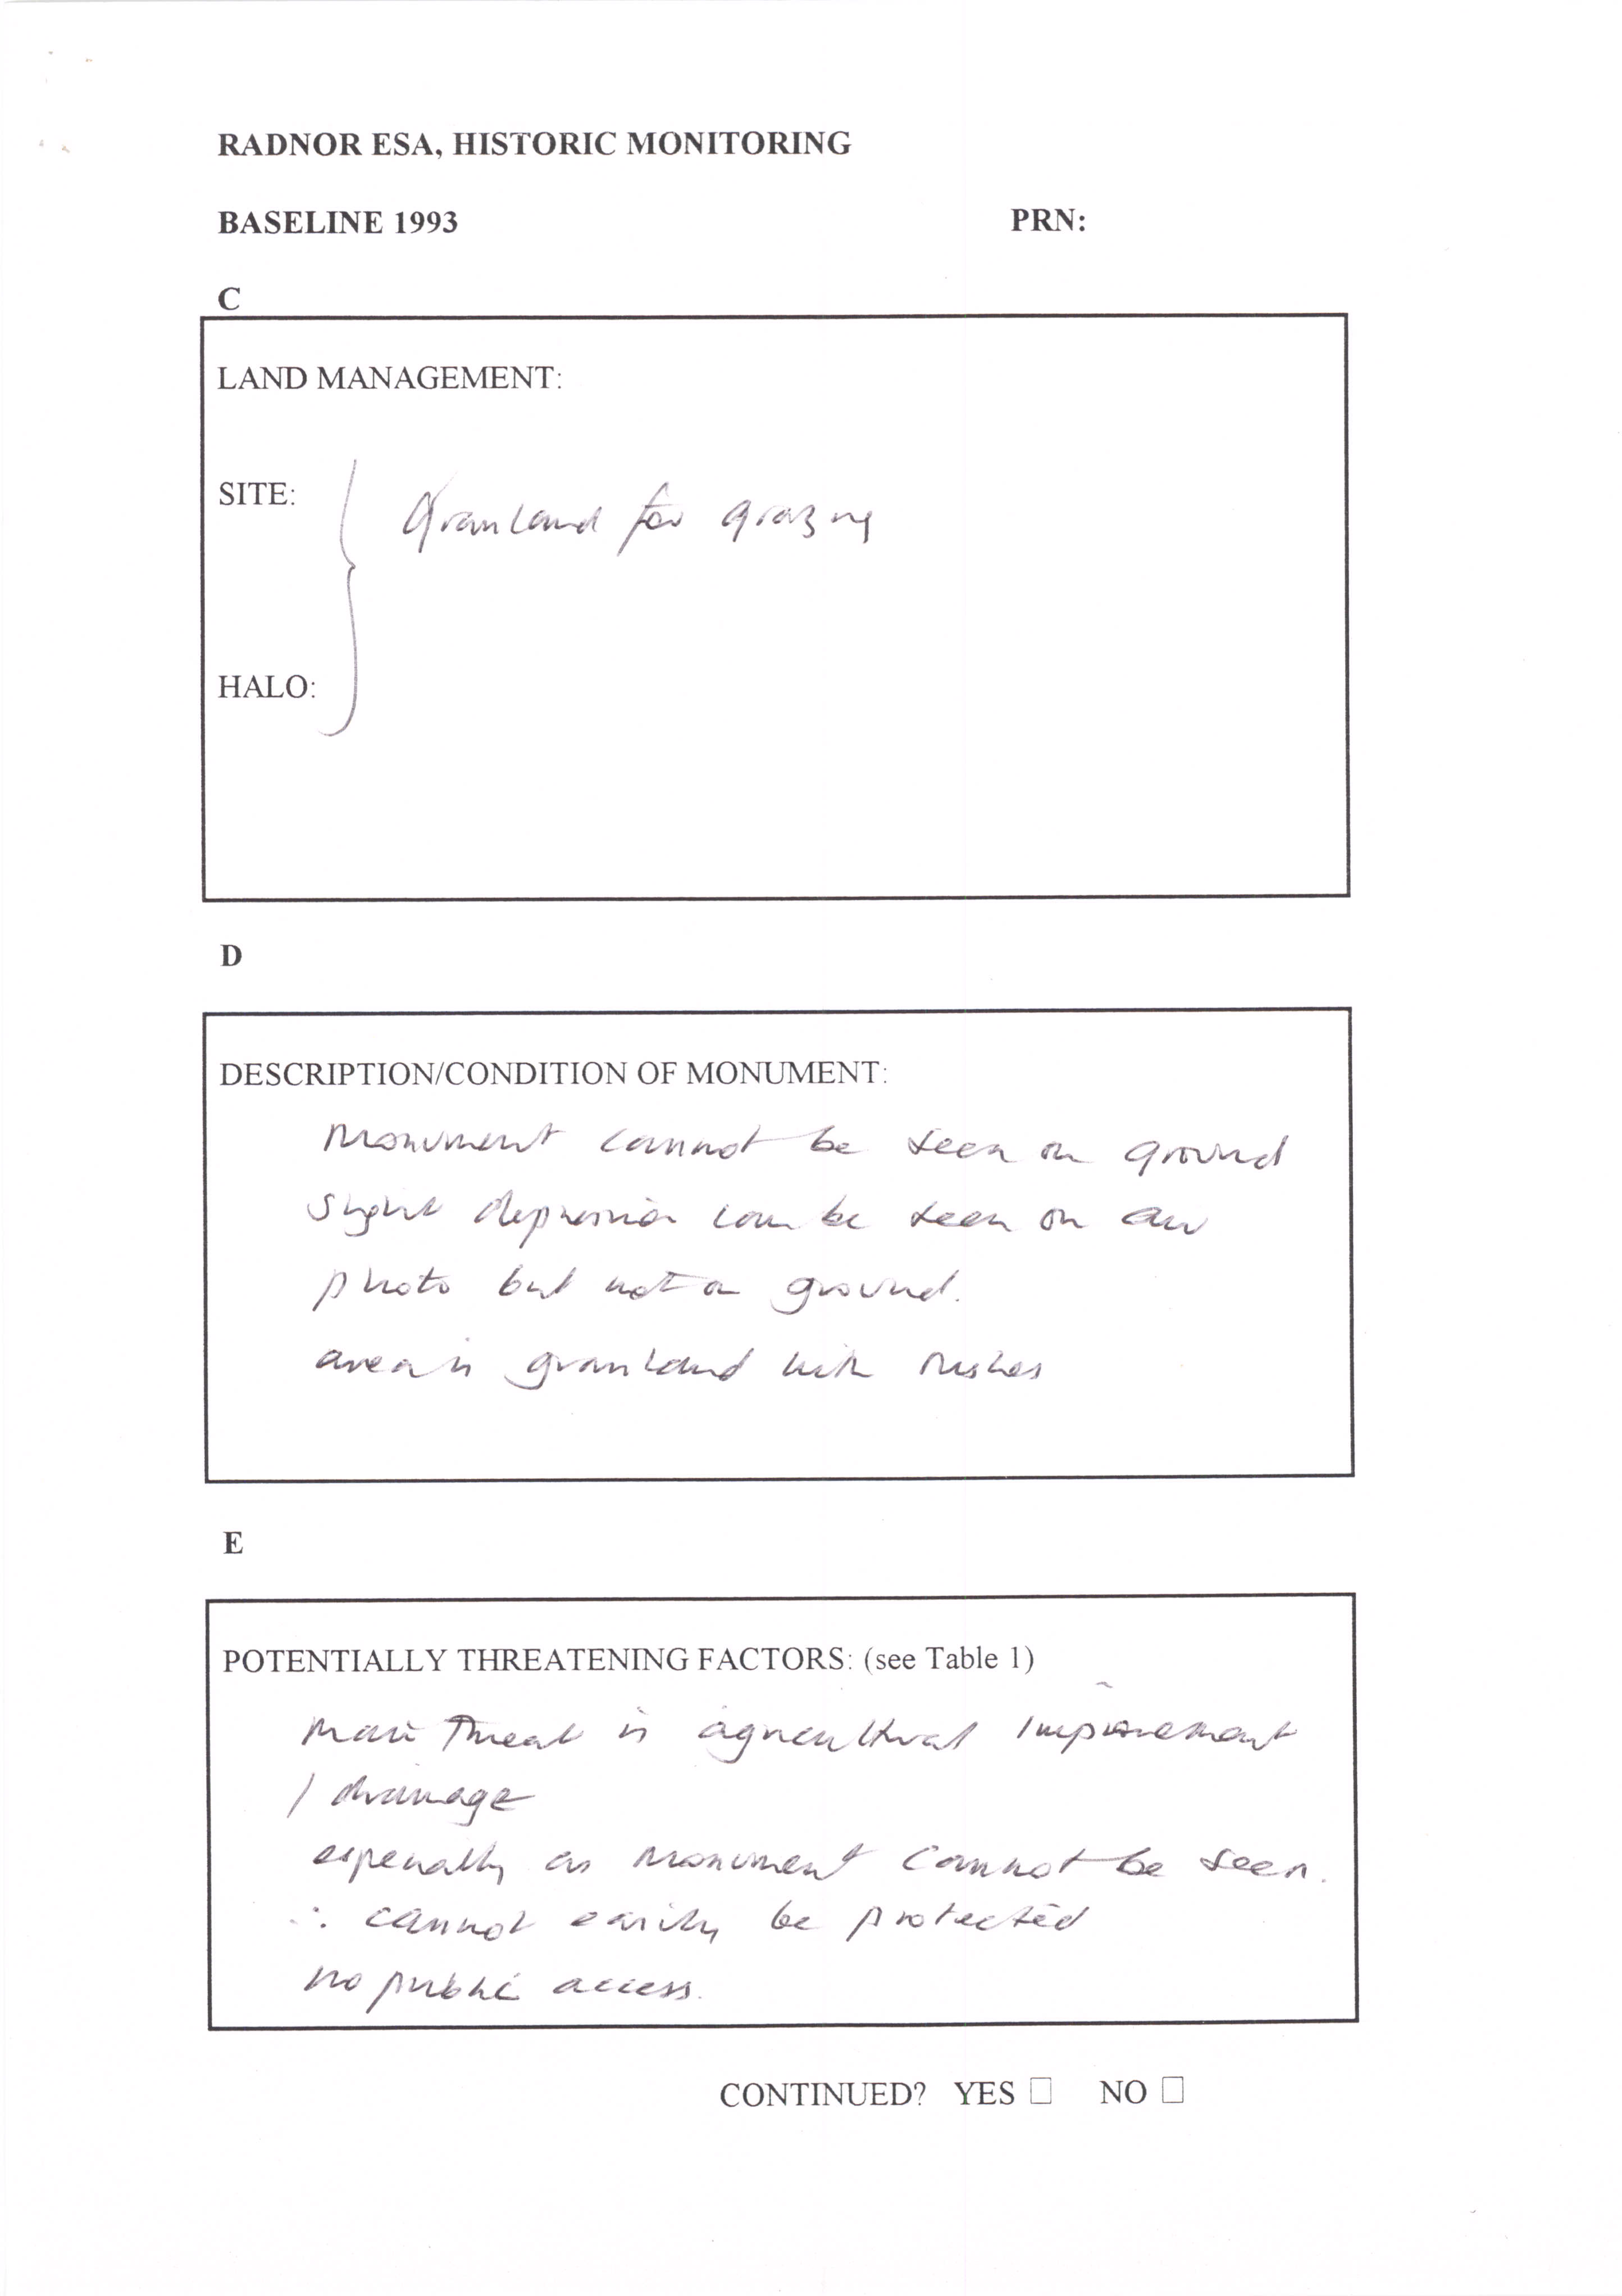 RADNOR ESA, HISTORIC MONITORING
BASELINE 1993 PRN:
C
LAND MANAGEMENT:
SITE:
Grassland for grazing
HALO:
D
DESCRIPTION/CONDITION OF MONUMENT:
Monument cannot be seen on ground
Slight depression can be seen on air
photo but not on ground.
area is grassland with rushes
E
POTENTIALLY THREATENING FACTORS: (see Table 1)
Main Threat is agricultural improvement
/ drainage
especially as monument cannot be seen.
∴ cannot easily be protected
no public access.
CONTINUED? YES ☐ NO ☐